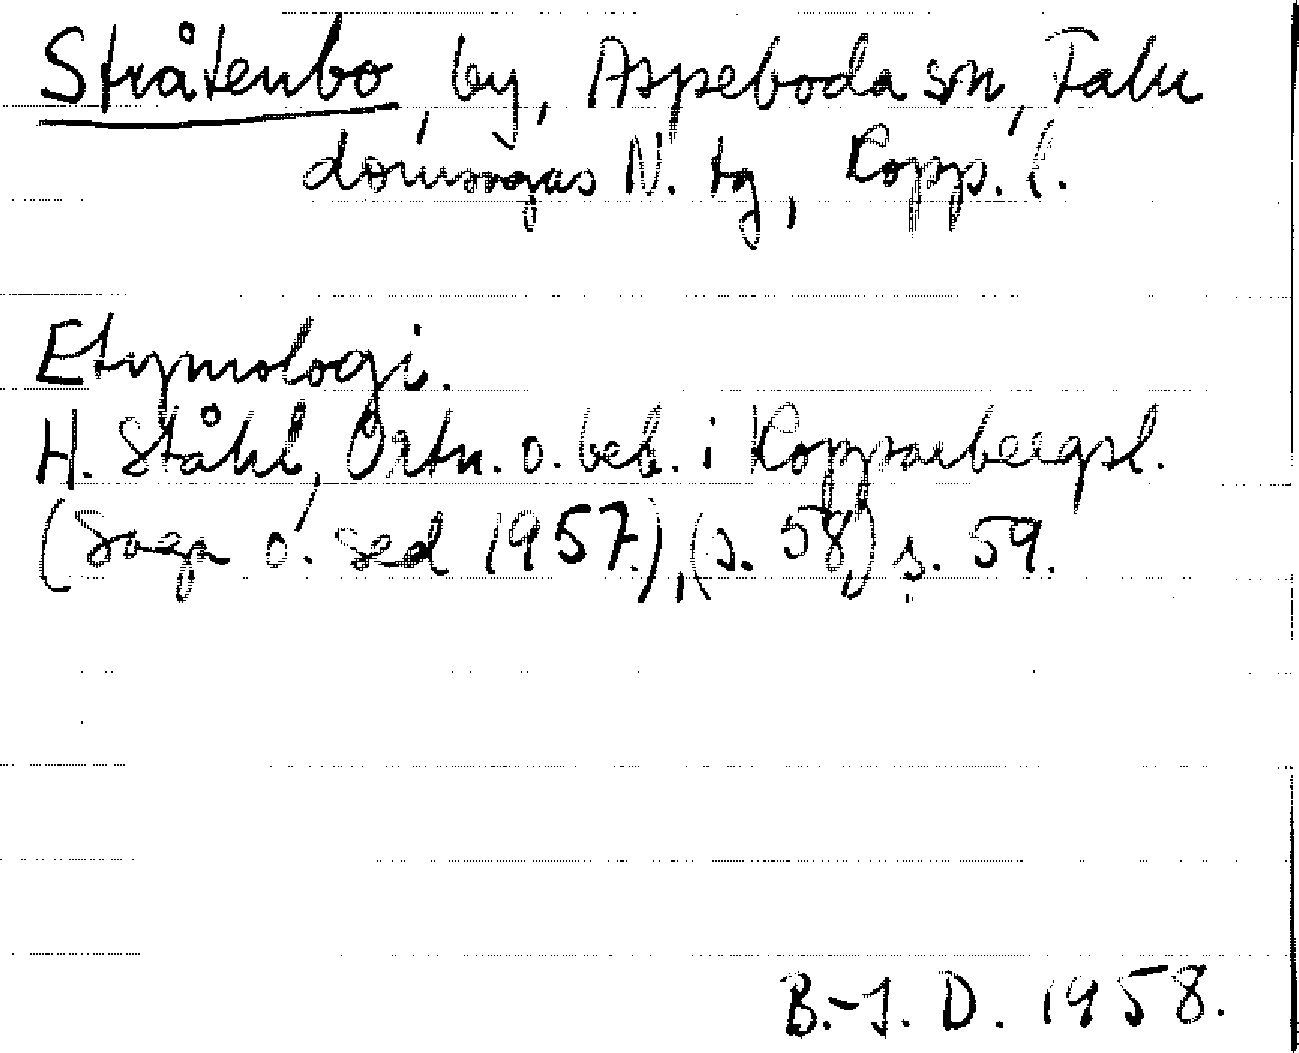 Stråtenbo, by, Aspeboda sn, Falu
domsagas N. tg, Kopp. l.
Etymologi.
H. Ståhl, Ortn. o. beb. i Kopparbergsl.
(Saga o. sed 1957.), (s. 58,) s. 59.
B.-J. D. 1958.